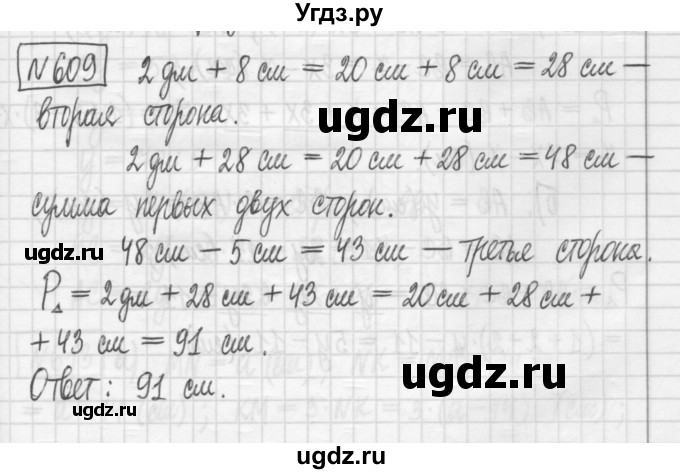 Угдз.ру
№609 2 дм + 8 см = 20 см + 8 см = 28 см –
вторая сторона.
ugdz.ru
ugdz.ru
2 дм + 28 см = 20 см + 28 см = 48 см –
сумма первых двух сторон.
ugdz.ru
ugdz.ru
48 см – 5 см = 43 см – третье сторона.
P△ = 2 дм + 28 см + 43 см = 20 см + 28 см +
+ 43 см = 91 см.
ugdz.ru
Ответ: 91 см.
ugdz.ru
ugdz.ru